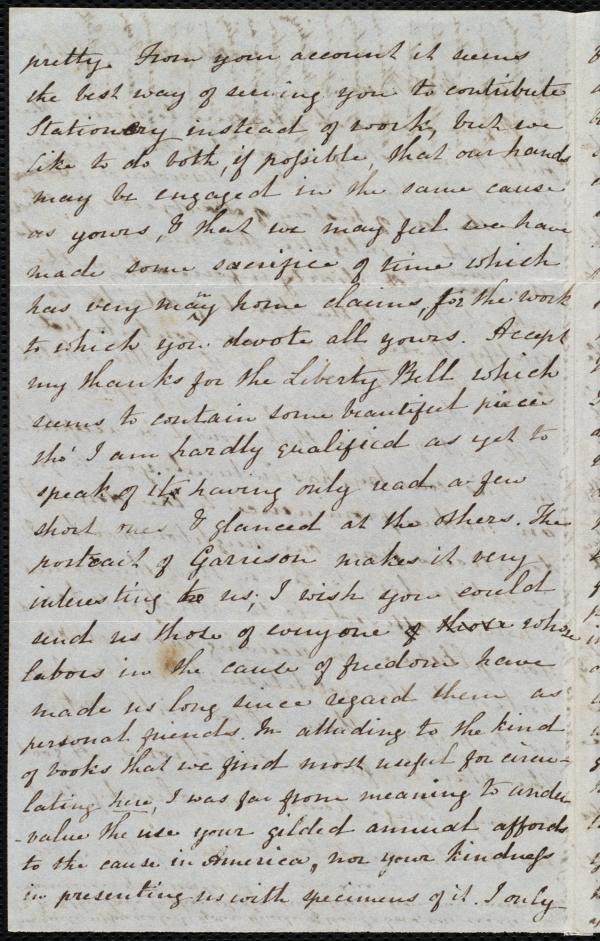 pretty. From your account it seems
the best way of serving you to contribute
Stationery instead of work, but we
like to do both, if possible, that our hands
may be engaged in the same cause
as yours, & that we may feel we have
made some sacrifice of time which
has very many home claims, for the work
to which you devote all yours. Accept
my thanks for the Liberty Bell which
seems to contain some beautiful pieces
tho' I am hardly qualified as yet to
speak of it having only read a few
short ones & glanced at the others. The
portrait of Garrison makes it very
interesting to us; I wish you could
send us those of everyone of those whose
labors in the cause of freedom have
made us long since regard them as
personal friends. In alluding to the kind
of books that we find most useful for circu-
lating here, I was far from meaning to under
-value the use your gilded annual affords
to the cause in America, nor your kindness
in presenting us with specimens of it. I only